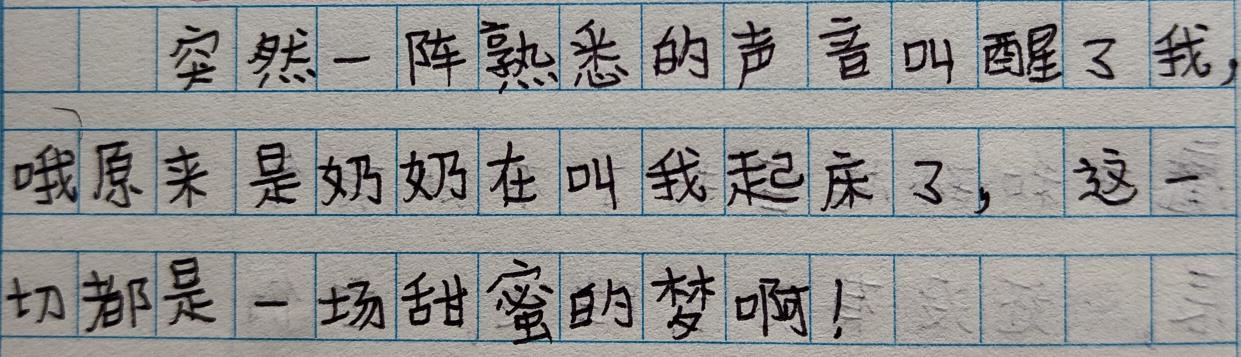 突然一阵熟悉的声音叫醒了我,
哦原来是奶奶在叫我起床了,这一
切都是一场甜蜜的梦啊!